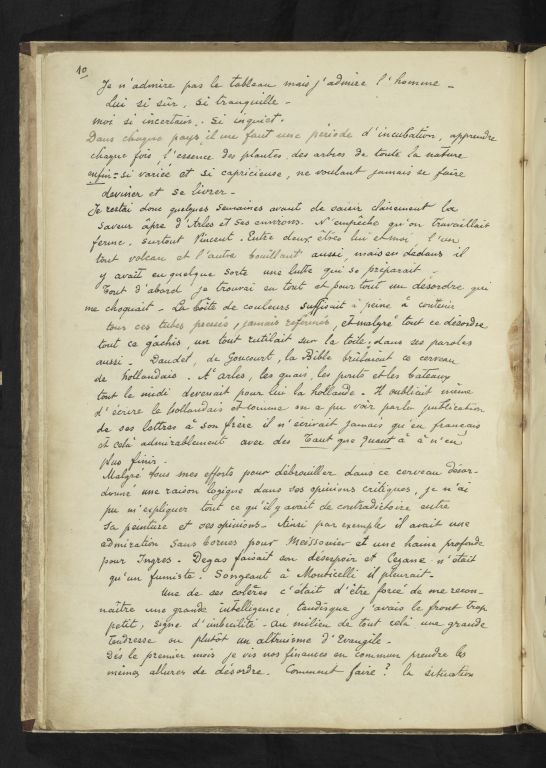 10
Je n'admire pas le tableau mais j'admire l'homme -
Lui si sûr, si tranquille -
moi si incertain, si inquiet.
Dans chaque pays il me faut une période d'incubation, apprendre
chaque fois, l'essence des plantes, des arbres de toute la nature
enfin = si variée et si capricieuse, ne voulant jamais se faire
deviner et se livrer -
Je restai donc quelques semaines avant de saisir clairement la
saveur âpre d'Arles et ses environs. N'empêche qu'on travaillait
ferme. Surtout Vincent. Entre deux êtres lui et moi, l'un
tout volcan et l'autre bouillant aussi, mais en dedans il
y avait en quelque sorte une lutte qui se préparait -
Tout d'abord je trouvai en tout et pour tout un désordre qui
me choquait - La boîte de couleurs suffisait à peine à contenir
tous ces tubes pressés, jamais refermés, et malgré tout ce désordre,
tout ce gâchis, un tout rutilait sur la toile; dans ses paroles
aussi - Daudet, de Goncourt, la Bible brûlaient ce cerveau
de hollandais - A Arles, les quais, les ponts et les bateaux
tout le midi devenait pour lui la hollande - Il oubliait même
d'écrire le hollandais et comme on a pu voir par la publication
de ses lettres à son frère il n'écrivait jamais qu'en français
et cela admirablement avec des Tant que quant à à n'en
plus finir -
Malgré tous mes efforts pour débrouiller dans ce cerveau désor-
donné une raison logique dans ses opinions critiques, je n'ai
pu m'expliquer tout ce qu'il y avait de contradictoire entre
sa peinture et ses opinions - Ainsi par exemple il avait une
admiration sans bornes pour Meissonier et une haine profonde
pour Ingres. Degas faisait son désespoir et Cezane n'était
qu'un fumiste. Songeant à Monticelli il pleurait -
Une de ses colères c'était d'être forcé de me recon-
naître une grande intelligence, tandisque j'avais le front trop
petit, signe d'imbécilité - au milieu de tout cela une grande
tendresse ou plutôt un altruisme d'Evangile -
Dès le premier mois je vis nos finances en commun prendre les
mêmes allures de désordre. Comment faire? la situation